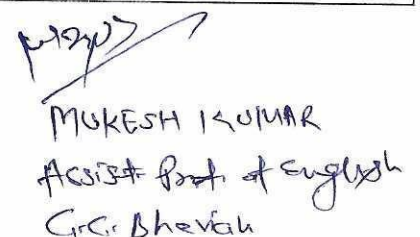 MUKESH KUMAR
Assist. Prof. of English
G.C. Bhewiah